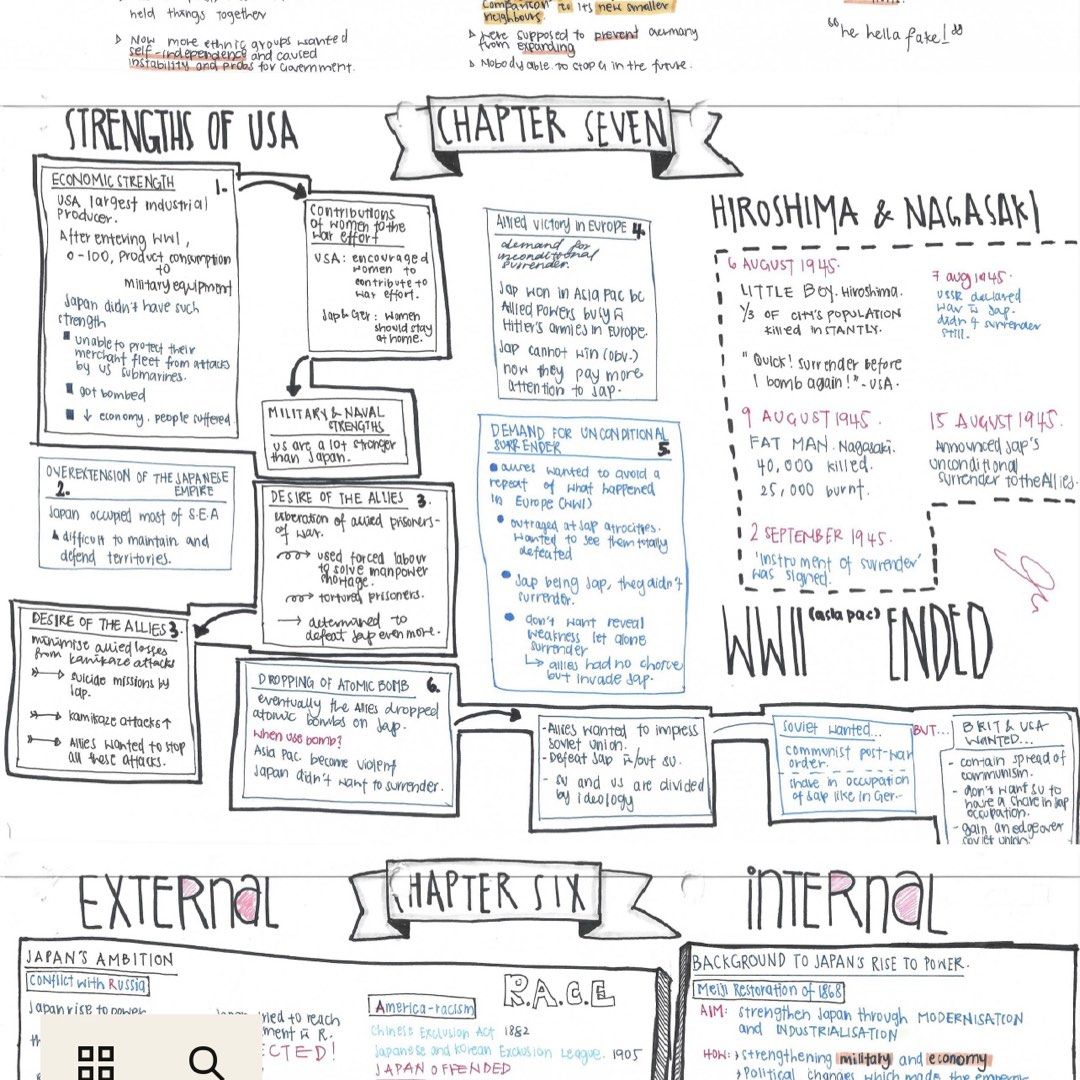 held things together
Now more ethnic groups wanted
self-independence and caused
instability and probs for Government.
comparison to its new smaller
neighbours.
were supposed to prevent Germany
from expanding
Nobody able to stop G in the future.
"he hella fake!"
CHAPTER SEVEN
STRENGTHS OF USA
ECONOMIC STRENGTH 1.
USA largest industrial
producer.
After entering WWI,
0-100, Product consumption
to
military equipment
Japan didn't have such
strength
unable to protect their
merchant fleet from attacks
by US submarines.
got bombed
↓ economy. people suffered
Contributions
of women to the
war effort
USA: encouraged
women to
contribute to
war effort.
Jap & Ger: women
should stay
at home.
MILITARY & NAVAL
STRENGTHS
US are a lot stronger
than Japan.
OVEREXTENSION OF THE JAPANESE
2. EMPIRE
Japan occupied most of S.E.A
difficult to maintain and
defend territories.
DESIRE OF THE ALLIES 3.
liberation of allied prisoners-
of war.
used forced labour
to solve manpower
shortage.
tortured prisoners.
→ determined to
defeat Jap even more.
DESIRE OF THE ALLIES 3.
minimise allied losses
from kamikaze attacks
suicide missions by
Jap.
kamikaze attacks ↑
Allies wanted to stop
all these attacks.
Allied victory in EUROPE 4.
demand for
unconditional
surrender.
Jap won in Asia Pac bc
Allied Powers busy w
Hitler's armies in Europe.
Jap cannot win (obv.)
now they pay more
attention to Jap.
DEMAND FOR UNCONDITIONAL
SURRENDER 5.
Allies wanted to avoid a
repeat of what happened
in Europe (WWI)
outraged at Jap atrocities.
wanted to see them totally
defeated
Jap being Jap, they didn't
surrender.
don't want reveal
weakness let alone
surrender
↳ allies had no choice
but invade Jap.
DROPPING OF ATOMIC BOMB 6.
eventually the Allies dropped
atomic bombs on Jap.
when use bomb?
Asia Pac. become violent
Japan didn't want to surrender.
- Allies wanted to impress
Soviet Union.
- Defeat Jap w/out SU.
- SU and US are divided
by ideology
Soviet wanted...
communist post-war
order.
share in occupation
of Jap like in Ger.
BUT...
BRIT & USA
WANTED...
- contain spread of
communism.
- don't want SU to
have a share in Jap
occupation.
- gain an edge over
Soviet Union.
HIROSHIMA & NAGASAKI
6 AUGUST 1945.
LITTLE BOY. Hiroshima.
⅓ OF CITY'S POPULATION
killed INSTANTLY.
"Quick! surrender before
I bomb again!" - USA.
7 aug 1945.
USSR declared
war w Jap.
didn't surrender
still.
9 AUGUST 1945.
FAT MAN. Nagasaki.
40,000 killed.
25,000 burnt.
15 AUGUST 1945.
Announced Jap's
unconditional
surrender to the Allies.
2 SEPTEMBER 1945.
'Instrument of surrender'
was signed.
WWII (asia pac) ENDED
CHAPTER SIX
EXTERNAL
JAPAN'S AMBITION
Conflict with Russia
Japan rise to power
tried to reach
R.A.C.E
America-racism
Chinese Exclusion Act 1882
Japanese and Korean Exclusion League. 1905
JAPAN OFFENDED
INTERNAL
BACKGROUND TO JAPAN'S RISE TO POWER.
Meiji Restoration of 1868
AIM: strengthen Japan through MODERNISATION
and INDUSTRIALISATION
HOW: strengthening military and economy
Political changes which made the